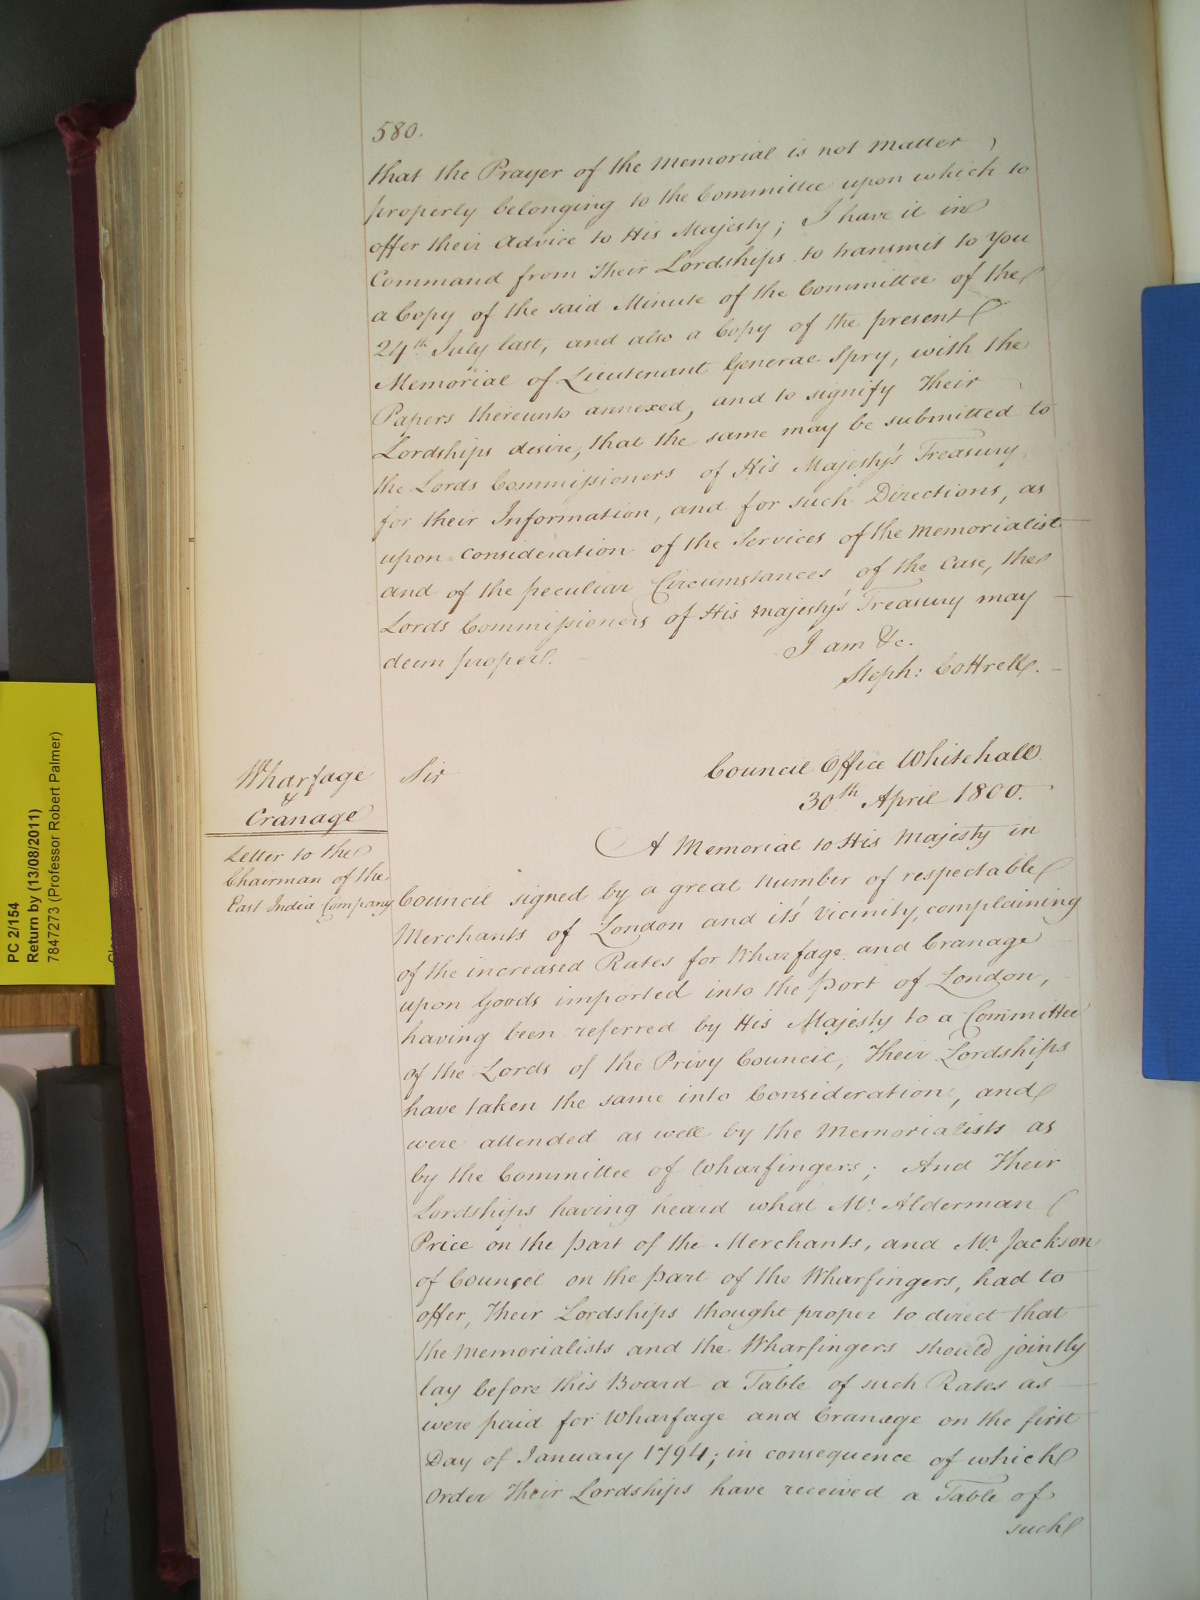 580.
that the Prayer of the Memorial is not Matter
properly belonging to the Committee upon which to
offer their Advice to His Majesty; I have it in
Command from Their Lordships to transmit to You
a Copy of the said Minute of the Committee of the
24th July last, and also a Copy of the present
Memorial of Lieutenant General Spry, with the
Papers thereunto annexed, and to signify Their
Lordships desire, that the same may be submitted to
the Lords Commissioners of His Majesty's Treasury
for their Information, and for such Directions, as
upon consideration of the Services of the Memorialist
and of the peculiar Circumstances of the Case, the
Lords Commissioners of His Majesty's Treasury may
deem proper.
I am &c.
Steph: Cottrell.
Wharfage
&
Cranage
Letter to the
Chairman of the
East India Company
Sir
Council Office Whitehall
30th April 1800.
A Memorial to His Majesty in
Council signed by a great number of respectable
Merchants of London and it's Vicinity, complaining
of the increased Rates for Wharfage and Cranage
upon Goods imported into the Port of London,
having been referred by His Majesty to a Committee
of the Lords of the Privy Council, Their Lordships
have taken the same into Consideration, and
were attended as well by the Memorialists as
by the Committee of Wharfingers; And Their
Lordships having heard what Mr. Alderman
Price on the part of the Merchants, and Mr. Jackson
of Counsel on the part of the Wharfingers, had to
offer, Their Lordships thought proper to direct that
the Memorialists and the Wharfingers should jointly
lay before this Board a Table of such Rates as
were paid for Wharfage and Cranage on the first
Day of January 1794; in consequence of which
Order Their Lordships have received a Table of
such
PC 2/154
Return by (13/08/2011)
7847273 (Professor Robert Palmer)